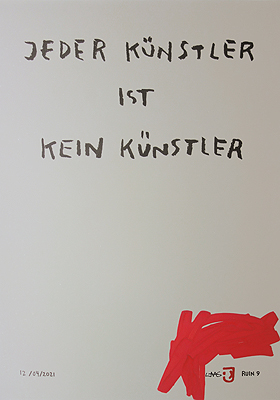 JEDER KÜNSTLER
IST
KEIN KÜNSTLER
12/04/2021
RUIN 9